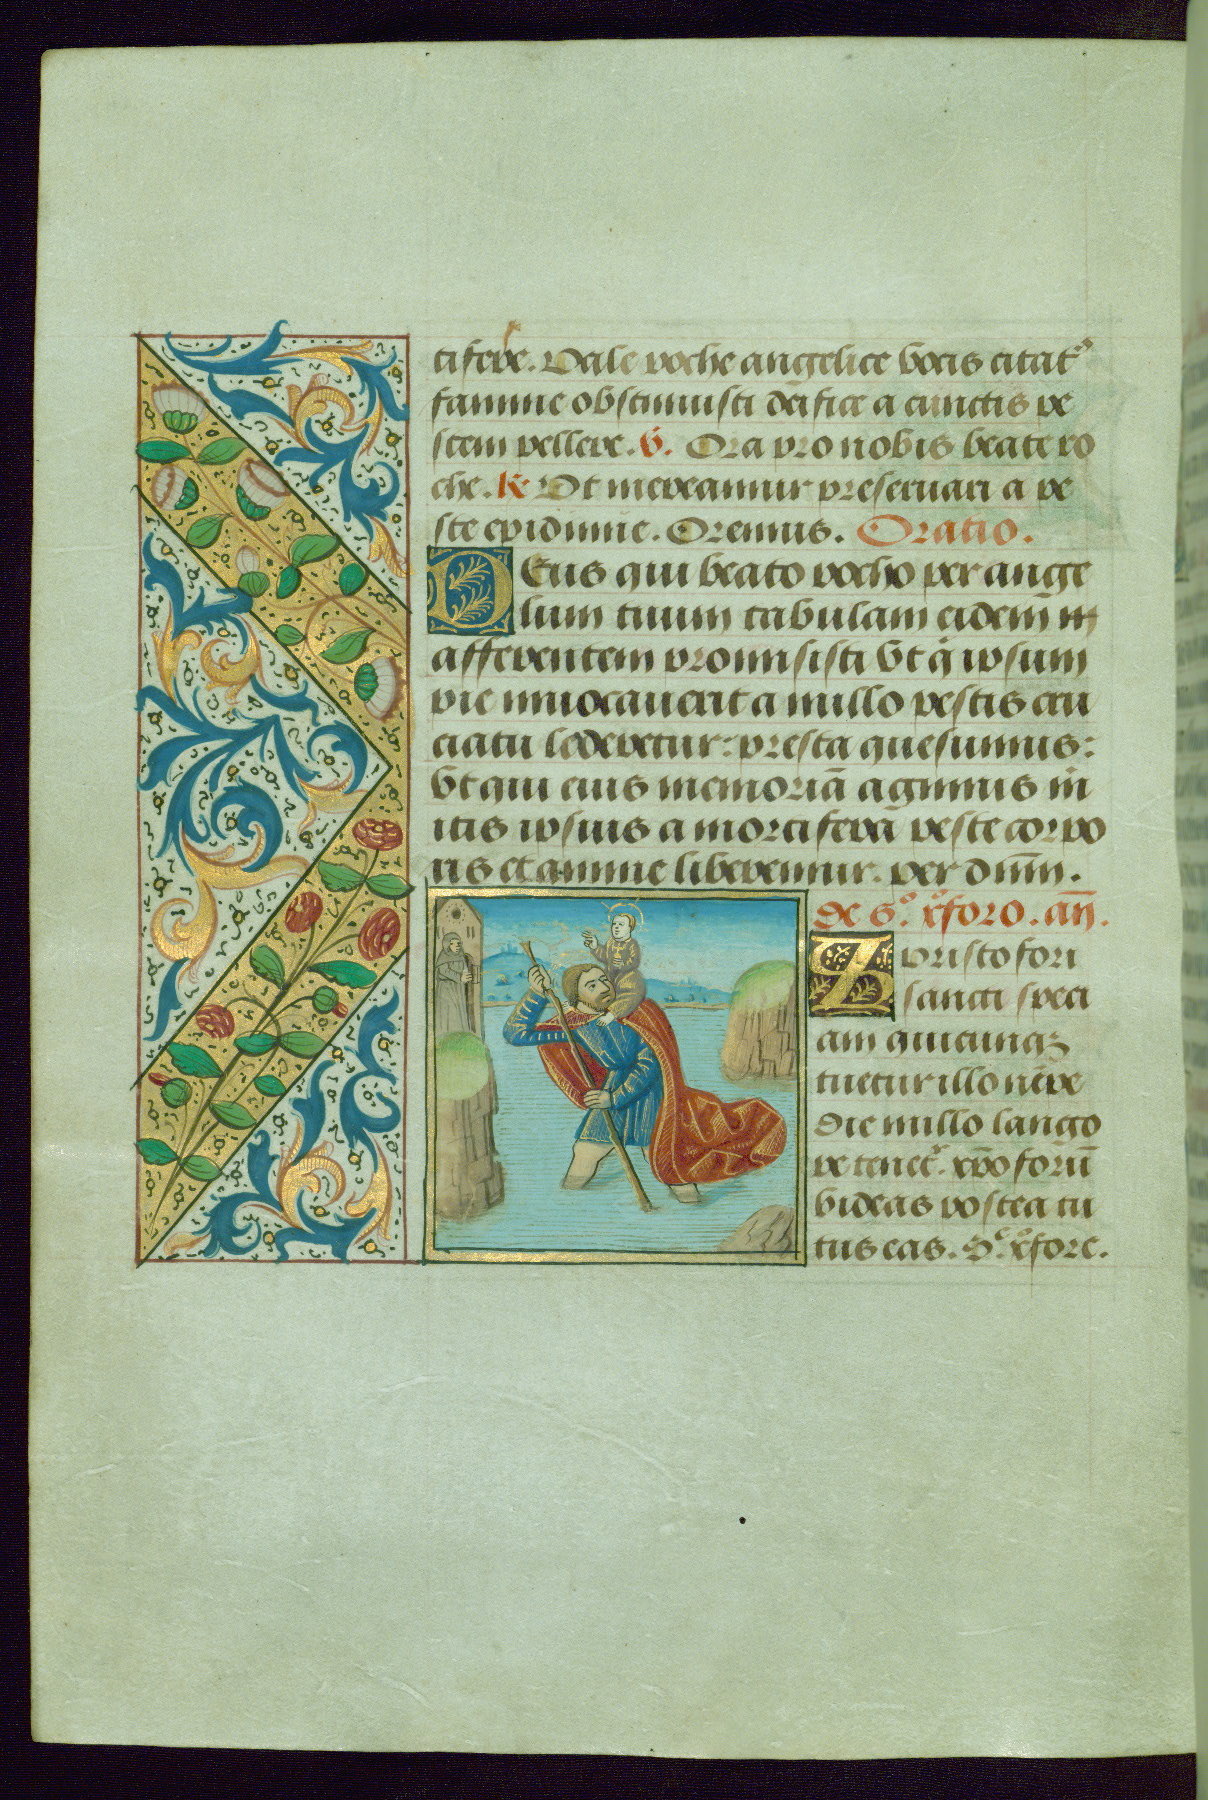 tifere. Vale roche angelice vocis citat᷒
famine obtinuisti deifice a cunctis pe
stem pellere. v̄. Ora pro nobis beate ro
che. R Vt mereamur preseruari a pe
ste epidimie. Oremus. Oratio.
DEus qui beato rocho per ange
lum tuum tabulam eidem̄
afferentem promisisti vt q̇ ipsum
pie inuocauerit a nullo pestis cru
ciatu lederetur: presta quesumus:
vt qui eius memoriā agimus m̄
itis ipsius a mortiferā peste corpo
ris et anime liberemur. per dnm̄.
de s.º xp̄foro. an̄.
Xpristofori
sancti speci
am quicunqꝫ
tuetur illo nēpe
die nullo lango
re tenet᷒. xpoforū
videas postea tu
tus eas. S.ᵉ xp̄fore.